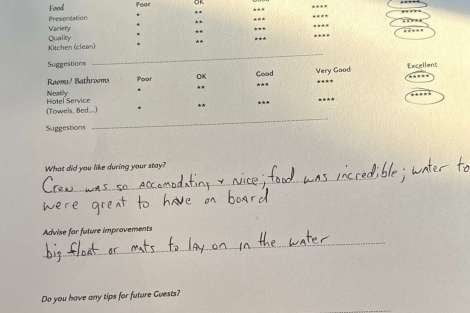 Food Poor OK
Presentation * ** *** **** *****
Variety * ** *** **** *****
Quality * ** *** **** *****
Kitchen (clean) * ** *** **** *****
Suggestions
Rooms/ Bathrooms Poor OK Good Very Good Excellent
Neatly * ** *** **** *****
Hotel Service
(Towels, Bed...) * ** *** **** *****
Suggestions
What did you like during your stay?
Crew was so accomodating + nice; food was incredible; water to
were great to have on board
Advise for future improvements
big float or mats to lay on in the water
Do you have any tips for future Guests?